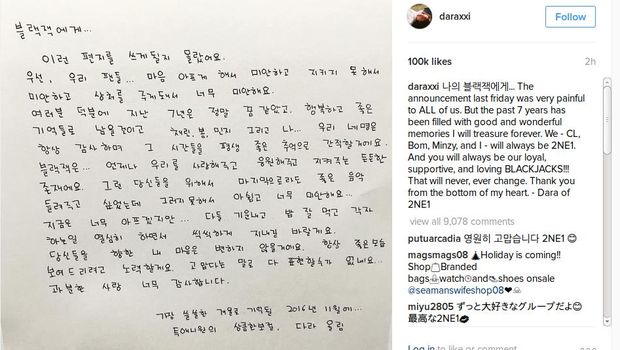 블랙잭에게...
이런 편지를 쓰게될지 몰랐어요.
우선, 우리 팬들... 마음 아프게 해서 미안하고 지키지 못해서
미안하고 상처를 주게돼서 너무 미안해요.
여러분 덕분에 지난 7년은 정말 꿈 같았고, 행복하고 좋은
기억들로 남을것이고 채린, 봄, 민지 그리고 나... 우리 네명은
항상 감사하며 그 시간들을 평생 좋은 추억으로 간직할게요.
블랙잭은... 언제나 우리를 사랑해주고 응원해주고 지켜주는 든든한
존재에요. 그런 당신들을 위해서 마지막으로라도 좋은 음악
들려주고 싶었는데 그러지못해서 아쉽고 너무 미안해요...
지금은 너무 아프겠지만... 다들 기운내고 밥 잘 먹고 각자
하는일 열심히 하면서 씩씩하게 지내길 바랄게요.
당신들을 향한 내 마음은 변하지 않을거에요. 항상 좋은모습
보여드리려고 노력할게요. 고맙다는 말로 다 표현할수가 없네요...
과분한 사랑 너무 감사합니다.
가장 쓸쓸한 겨울로 기억될 2016년 11월에...
투애니원의 상큼한보컬, 다라 올림
daraxxi
Follow
100k likes
2h
daraxxi 나의 블랙잭에게... The
announcement last friday was very painful
to ALL of us. But the past 7 years has
been filled with good and wonderful
memories I will treasure forever. We - CL,
Bom, Minzy, and I - will always be 2NE1.
And you will always be our loyal,
supportive, and loving BLACKJACKS!!!
That will never, ever change. Thank you
from the bottom of my heart. - Dara of
2NE1
view all 9,078 comments
putuarcadia 영원히 고맙습니다 2NE1 😊
magsmags08 🎄Holiday is coming!!
Shop👜Branded
bags👜watch⌚and👠shoes onsale
@seamanswifeshop08❤
miyu2805 ずっと大好きなグループだよ😊
最高な2NE1💋
Log in to like or comment.